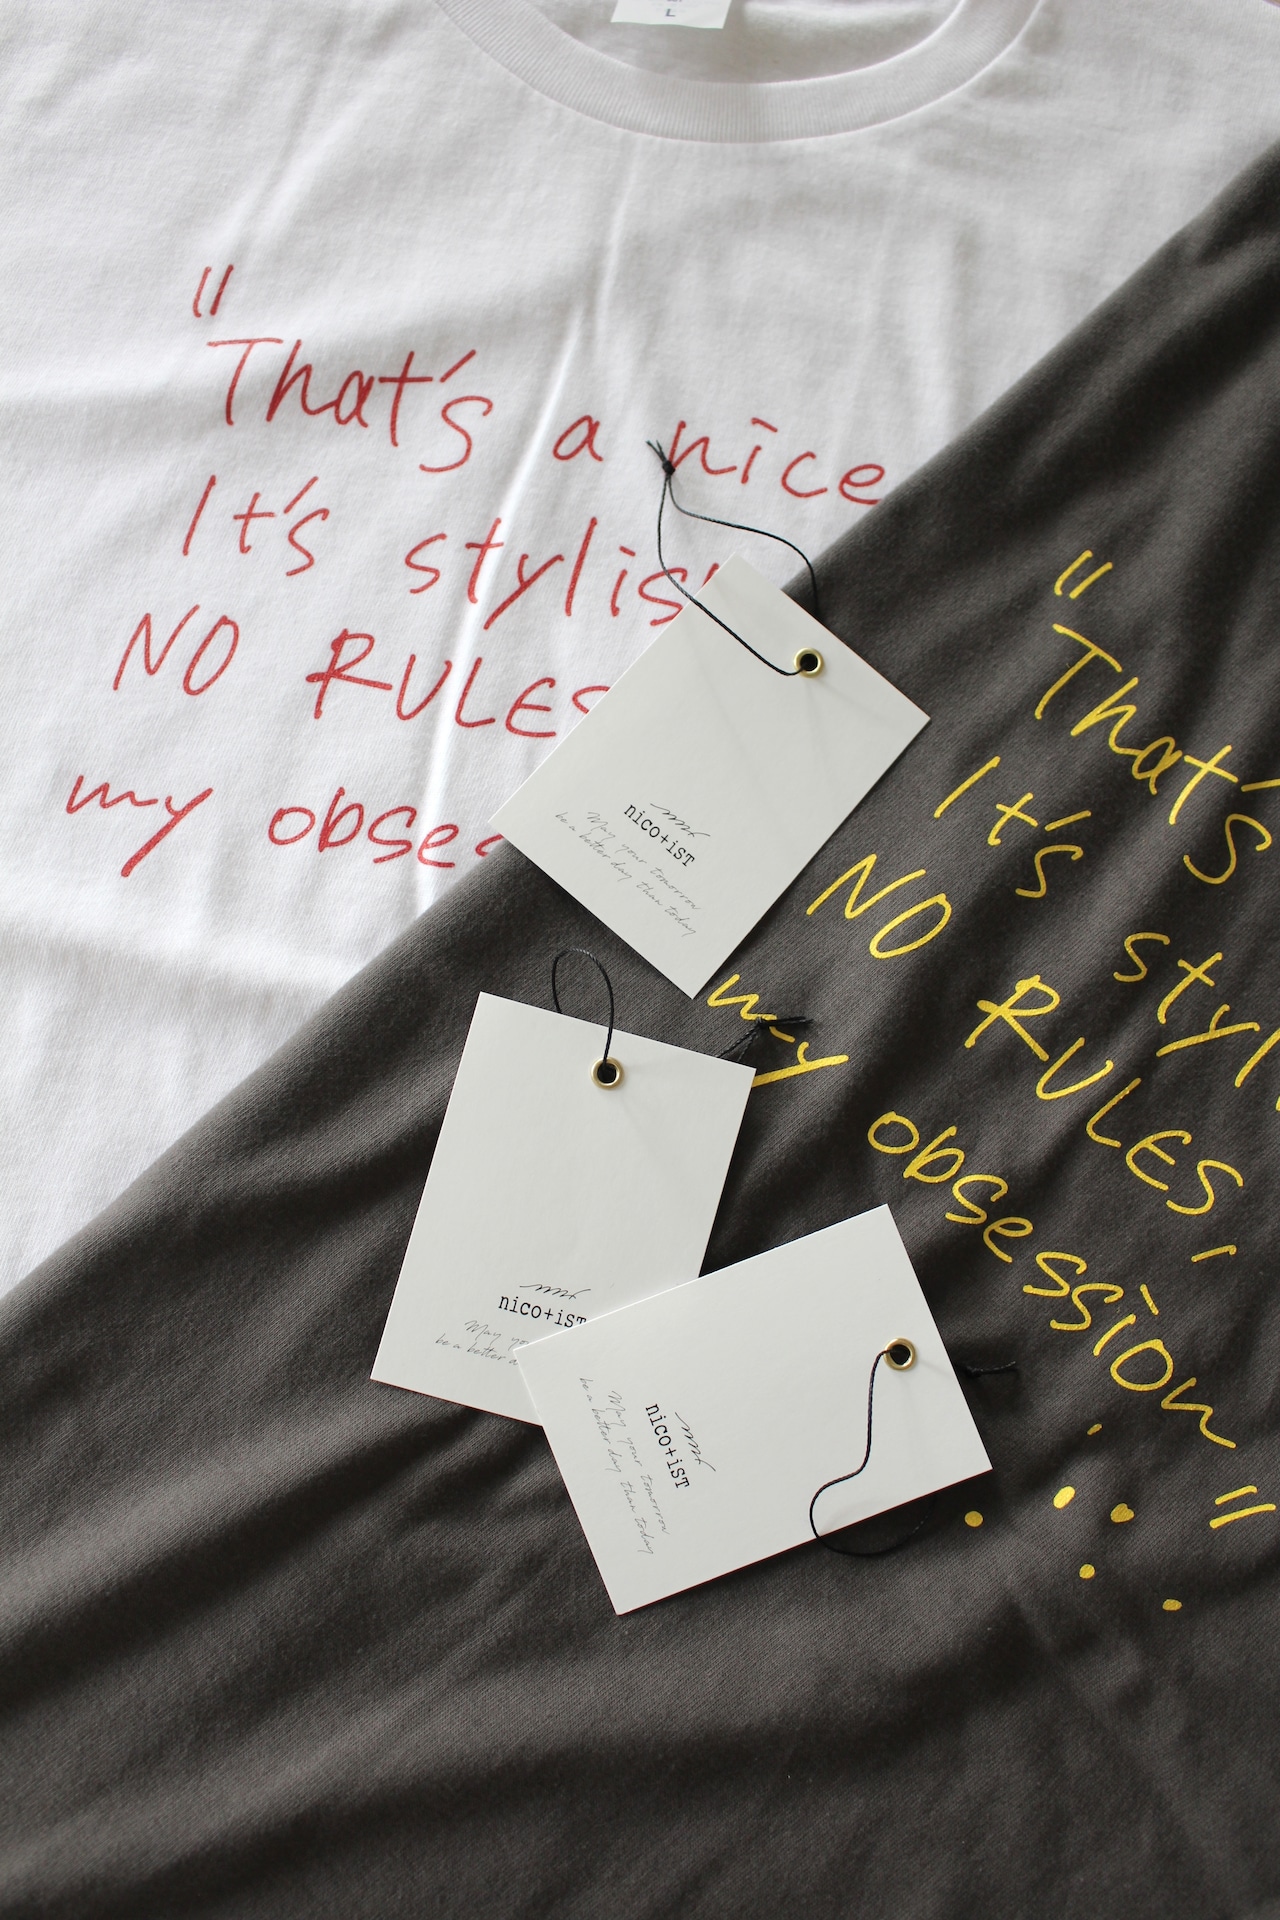 L
"
That's a nice
It's stylis
NO RULES
my obses
"
That's
It's styl
NO RULES,
my obsession"
nico+iST
May your tomorrow
be a better day than today
nico+iST
May yo
be a better d
nico+iST
May your tomorrow
be a better day than today